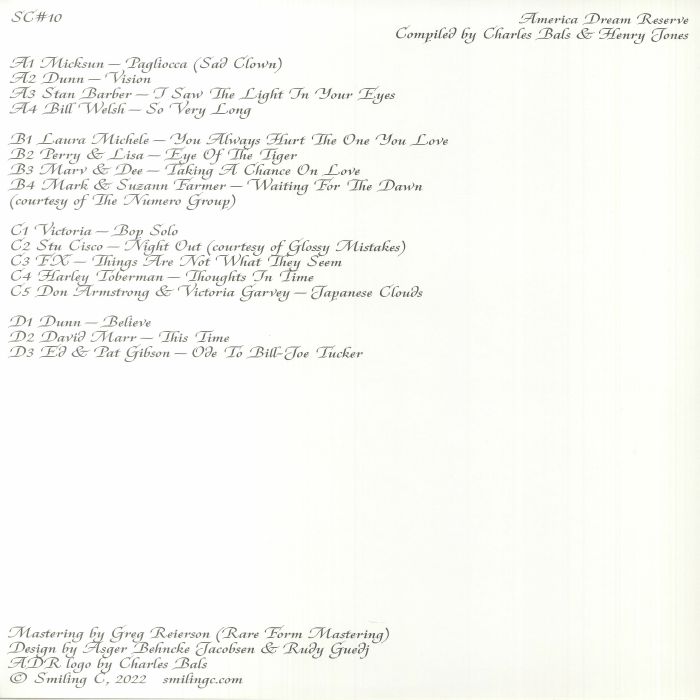 SC#10
America Dream Reserve
Compiled by Charles Bals & Henry Jones
A1 Micksun – Pagliocca (Sad Clown)
A2 Dunn – Vision
A3 Stan Barber – I Saw The Light In Your Eyes
A4 Bill Welsh – So Very Long
B1 Laura Michele – You Always Hurt The One You Love
B2 Perry & Lisa – Eye Of The Tiger
B3 Marv & Dee – Taking A Chance On Love
B4 Mark & Suzann Farmer – Waiting For The Dawn
(courtesy of The Numero Group)
C1 Victoria – Bop Solo
C2 Stu Cisco – Night Out (courtesy of Glossy Mistakes)
C3 FX – Things Are Not What They Seem
C4 Harley Toberman – Thoughts In Time
C5 Don Armstrong & Victoria Garvey – Japanese Clouds
D1 Dunn – Believe
D2 David Marr – This Time
D3 Ed & Pat Gibson – Ode To Bill-Joe Tucker
Mastering by Greg Reierson (Rare Form Mastering)
Design by Asger Behncke Jacobsen & Rudy Guedj
ADR logo by Charles Bals
© Smiling C, 2022 smilingc.com